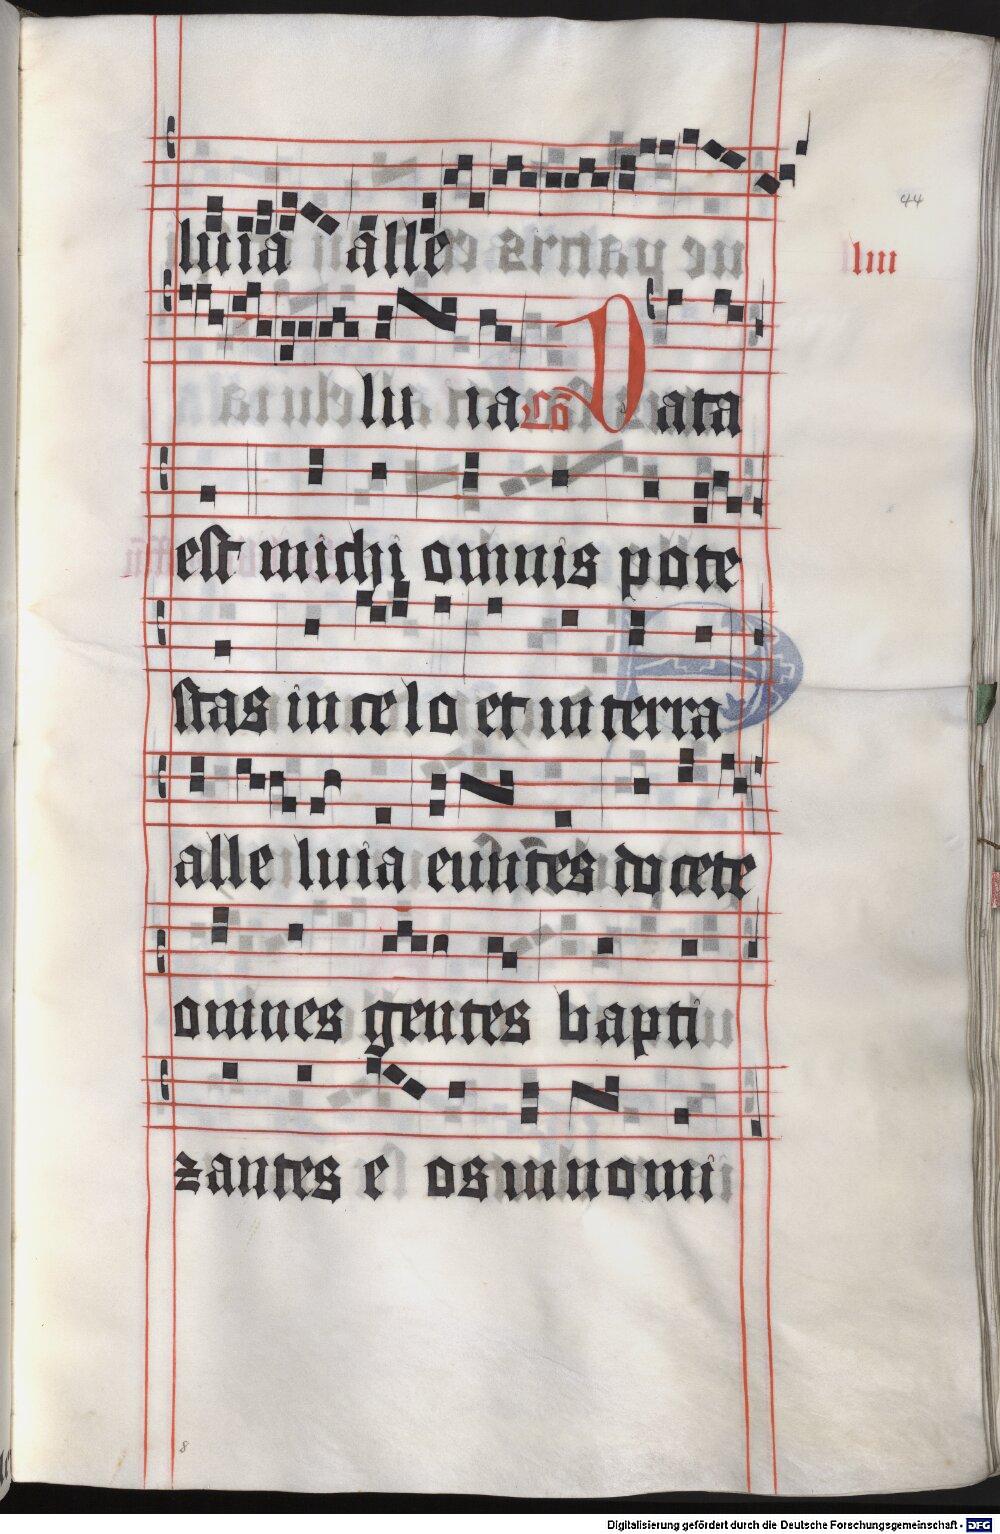 44
luia alle
liii
lu ia Cō Data
est michi omnis pote
stas in celo et in terra
alle luia euntes docete
omnes gentes bapti
zantes e os in nomi
8
Digitalisierung gefördert durch die Deutsche Forschungsgemeinschaft - DFG